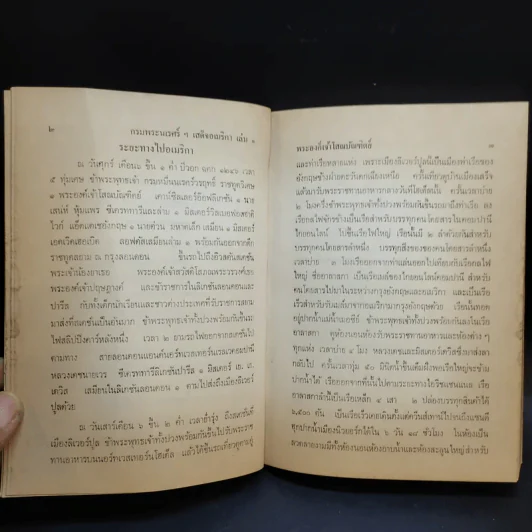 ๒ กรมพระนเรศร์ ฯ เสด็จอเมริกา เล่ม ๑
ระยะทางไปอเมริกา
ณ วันศุกร์ เดือน ๖ ขึ้น ๑ ค่ำ ปีวอก ฉอศก ๑๒๔๖ เวลา
๕ ทุ่มเศษ ข้าพระพุทธเจ้า กรมหมื่นนเรศร์วรฤทธิ์ ราชทูตวิเศษ
๑ พระองค์เจ้าโสณบัณฑิตย์
ไวก์ แอ็ดแตเชอังกฤษ ๑
ราชทูตสยาม ณ กรุงลอนดอน
พระเจ้าน้องยาเธอ พระองค์เจ้าสวัสดิโสภณพระวรวงศ์เธอ
พระองค์เจ้าปฤษฎางค์ และข้าราชการในลิเกชันลอนดอนและ
ปารีส กับทั้งเด็กนักเรียนและชาวต่างประเทศที่รับราชการสยาม
มาส่งที่สเตชันเป็นอันมาก ข้าพระพุทธเจ้าทั้งปวงพร้อมกันขึ้นรถ
เวลา ๒ ยามรถไฟออกจากสเตชันไป
ตามทาง สายลอนดอนแอนด์นอร์ทเวสเทอร์นเรลเวคอมปานี
หลวงเดชนายเวร ซีเกรตทารีลิเกชันปารีส ๑ มิสเตอร์ เอ. เก.
เดวิส เสมียนในลิเกชันลอนดอน ๑ ตามไปส่งถึงเมืองลิเวอร์
ปูลด้วย
ณ วันเสาร์เดือน ๖ ขึ้น ๒ ค่ำ เวลาย่ำรุ่ง ถึงสเตชันที่
เมืองลิเวอร์ปูล ข้าพระพุทธเจ้าทั้งปวงพร้อมกันขึ้นไปรับพระราช
ทานอาหารบนนอร์ทเวสเทอร์นโฮเต็ล แล้วได้ขึ้นรถเที่ยวดูตามอู่
พระองค์เจ้าโสณบัณฑิตย์ ๓
และท่าเรือหลายแห่ง เพราะเมืองลิเวอร์ปูลนี้เป็นเมืองท่าเรือของ
อังกฤษข้างฝ่ายตะวันตกเมืองหนึ่ง ครั้นเที่ยวดูบ้านเมืองเสร็จ
แล้วกลับมารับพระราชทานอาหารกลางวันที่โฮเต็ลนั้น ครั้นเวลาบ่าย
๒ โมงครึ่งข้าพระพุทธเจ้าทั้งปวงพร้อมกันขึ้นรถมาถึงท่าเรือ ลง
เรือกลไฟจักรข้างเป็นเรือสำหรับบรรทุกคนโดยสารในคอมปานี
ไปขึ้นเรือไฟใหญ่ เรือนั้นมี ๒ ลำด้วยกันสำหรับ
บรรทุกคนโดยสารลำหนึ่ง บรรทุกสิ่งของของคนโดยสารลำหนึ่ง
เวลาบ่าย ๓ โมงเรือออกจากท่าแล่นออกไปเทียบกับเรือกลไฟ
ใหญ่ ชื่ออาลาสกา เป็นเรือเมล์ของไกยอนไลน์คอมปานี สำหรับ
คนโดยสารไปมาในระหว่างกรุงอังกฤษและอเมริกา และเป็นเรือ
เร็วสำหรับรับเมล์มาจากอเมริกามากรุงอังกฤษด้วย เรือนั้นทอด
อยู่ปากน้ำแม่น้ำเมอซี ข้าพระพุทธเจ้าทั้งปวงพร้อมกันลงในเรือ
อาลาสกา ดูห้องนอนห้องรับพระราชทานอาหารและห้องต่าง ๆ
ทุกแห่ง เวลาบ่าย ๔ โมง หลวงเดชและมิสเตอร์เดวิสซึ่งมาส่งลา
กลับไป ครั้นเวลาทุ่ม ๔๐ มินิตน้ำขึ้นเต็มฝั่งพอเรือใหญ่จะข้าม
ปากน้ำได้ เรือออกจากที่นั้นไปตามระหว่างไอริชแชนแนล เรือ
อาลาสกาลำนี้เป็นเรือเหล็ก ๔ เสา ๒ ปล่องบรรทุกสินค้าได้
๖,๙๐๐ ตัน
ทุกปากน้ำเมืองนิวยอร์กได้ใน ๖ วัน ๑๘ ชั่วโมง ในห้องเป็น